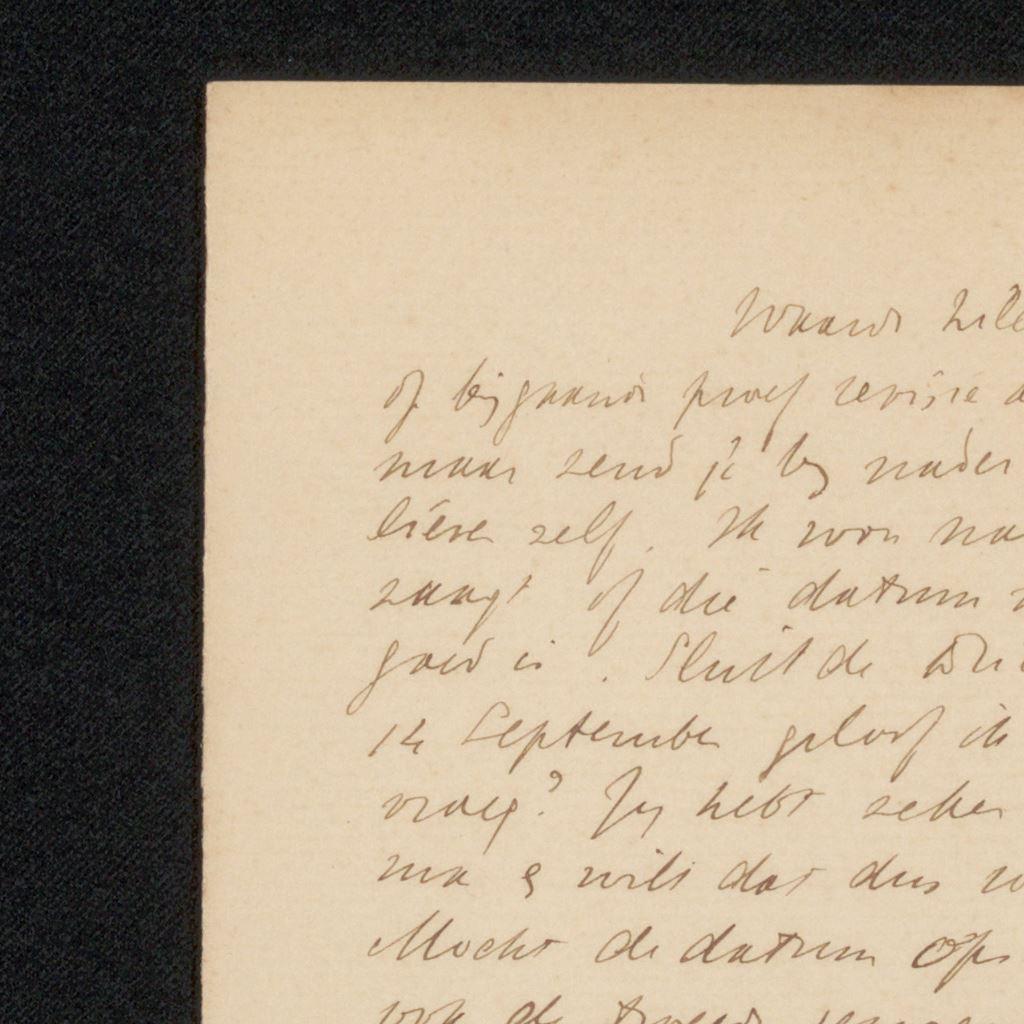 Waarde
of bijgaande proef revisie
maar zend je bij nader
liever zelf. Ik wou
zaagt of die datum
goed is. Sluit de
14 September geloof ik
vroeg? Jij hebt zeker
ma & wilt dat dus
Mocht de datum op
ook de tweede